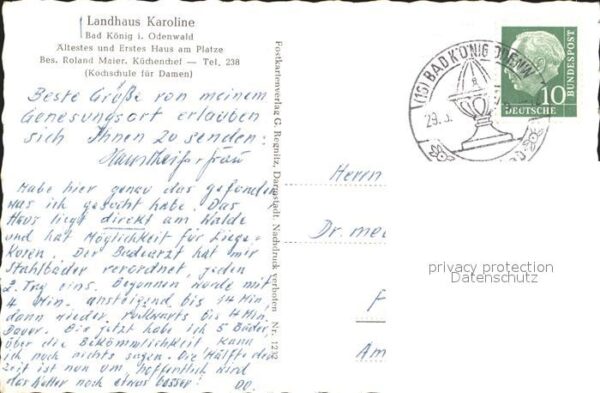 Landhaus Karoline
Bad König i. Odenwald
Ältestes und Erstes Haus am Platze
Bes. Roland Maier, Küchenchef — Tel. 238
(Kochschule für Damen)
Beste Grüße von meinem
Genesungsort erlauben
sich Ihnen zu senden:
+ Frau
Habe hier genau das gefunden
was ich gesucht habe. Das
Haus liegt direkt am Walde
und hat Möglichkeit für Liege-
kuren. Der Badearzt hat mir
Stahlbäder verordnet, jeden
2. Tag eins. Begonnen wurde mit
4 Min. ansteigend bis 14 Min.
dann wieder rückwärts bis 4 Min.
Dauer. Bis jetzt habe ich 5 Bäder,
über die Bekömmlichkeit kann
ich noch nichts sagen. Die Hälfte der
Zeit ist nun um, hoffentlich wird
das Wetter noch etwas besser! D.O.
Postkartenverlag G. Regnitz, Darmstadt, Nachdruck verboten Nr. 1232
(16) BAD KÖNIG ODENW
29.5.
10
DEUTSCHE
BUNDESPOST
Herrn
Dr. med
F
Am
privacy protection
Datenschutz